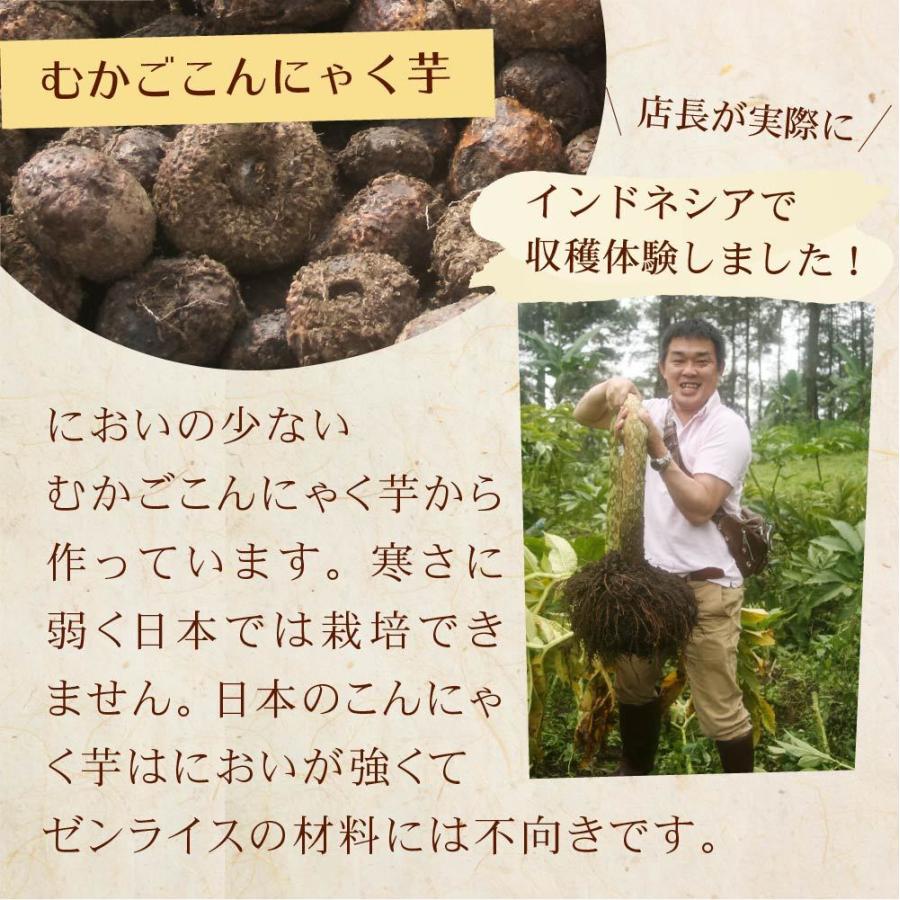 むかごこんにゃく芋
店長が実際に
インドネシアで
収穫体験しました！
においの少ない
むかごこんにゃく芋から
作っています。寒さに
弱く日本では栽培でき
ません。日本のこんにゃ
く芋はにおいが強くて
ゼンライスの材料には不向きです。